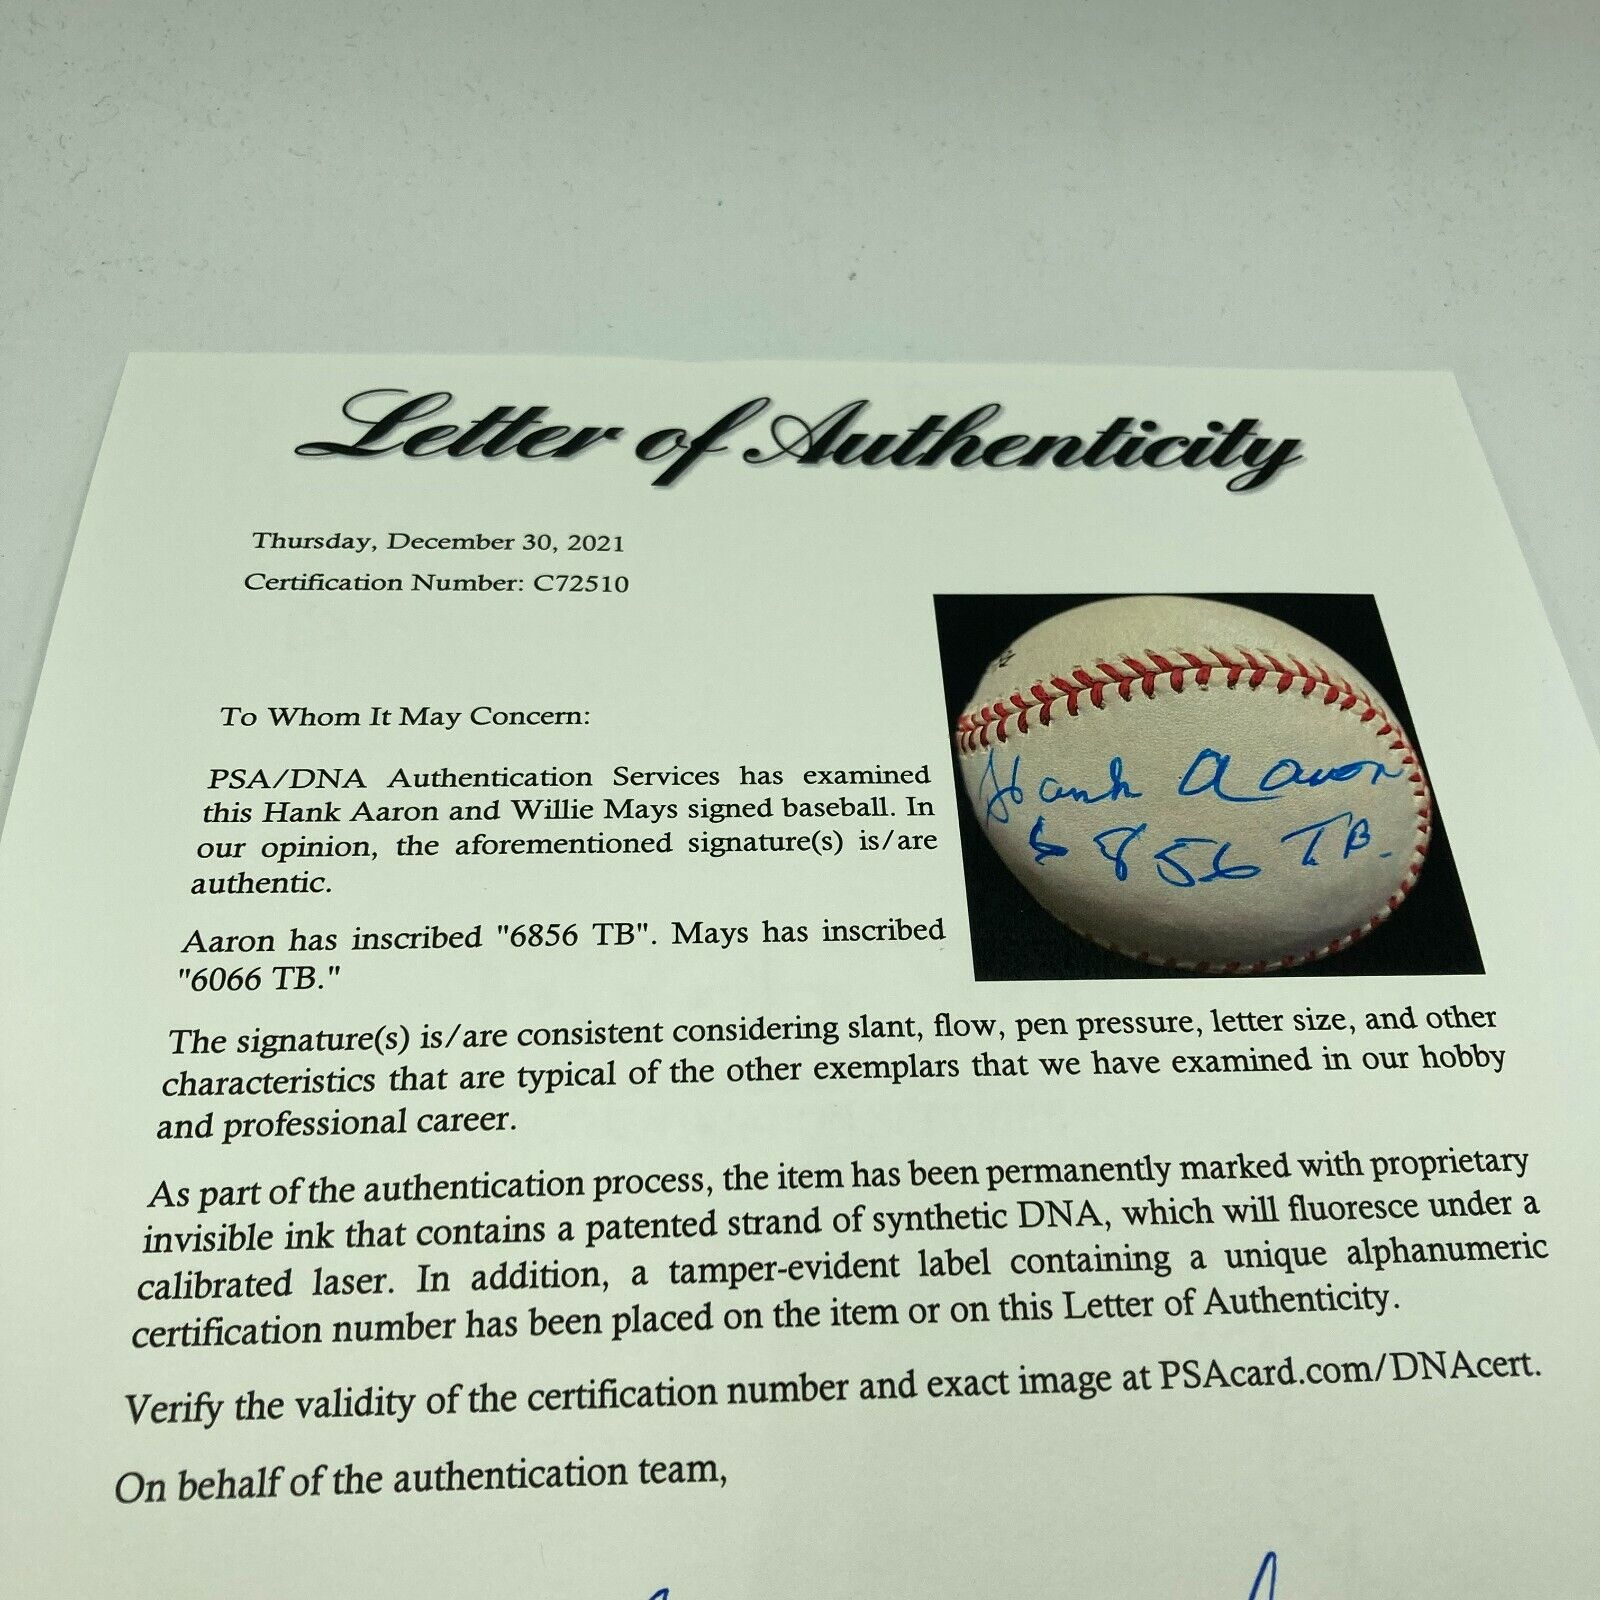 Letter of Authenticity
Thursday, December 30, 2021
Certification Number: C72510
To Whom It May Concern:
PSA/DNA Authentication Services has examined
this Hank Aaron and Willie Mays signed baseball. In
our opinion, the aforementioned signature(s) is/are
authentic.
Aaron has inscribed "6856 TB". Mays has inscribed
"6066 TB."
Hank Aaron
6856 TB.
The signature(s) is/are consistent considering slant, flow, pen pressure, letter size, and other
characteristics that are typical of the other exemplars that we have examined in our hobby
and professional career.
As part of the authentication process, the item has been permanently marked with proprietary
invisible ink that contains a patented strand of synthetic DNA, which will fluoresce under a
calibrated laser. In addition, a tamper-evident label containing a unique alphanumeric
certification number has been placed on the item or on this Letter of Authenticity.
Verify the validity of the certification number and exact image at PSAcard.com/DNAcert.
On behalf of the authentication team,